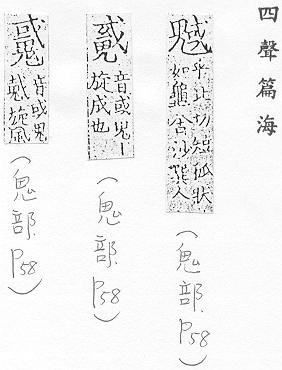 四聲篇海
魊
乎北切短狐狀
如龜含沙人
(鬼部.P58)
音或鬼丨
旋成也
(鬼部.P58)
音或鬼
旋風
(鬼部.P58)